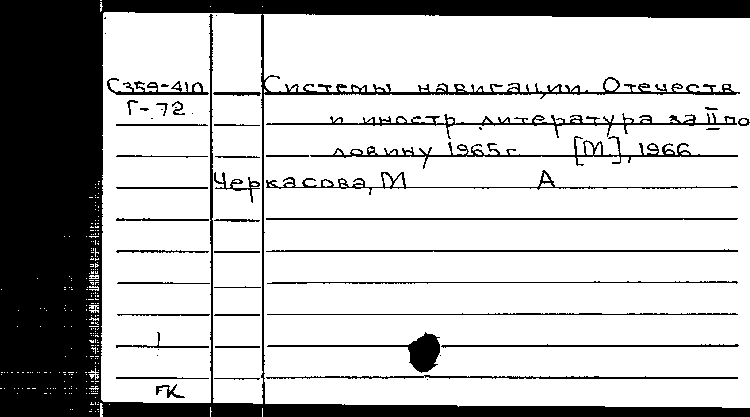 С359-410 Системы навигации. Отечеств
Г-72 и иностр. литература за II по
ловину 1965г. [М.], 1966.
Черкасова, М А
ГК